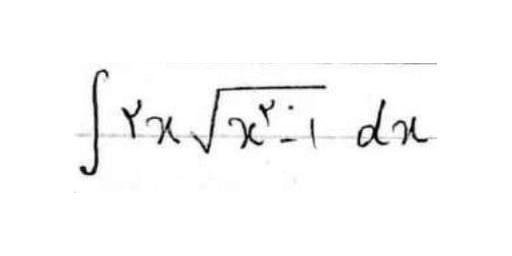 ∫ ۲x √(x^۲ - ۱) dx